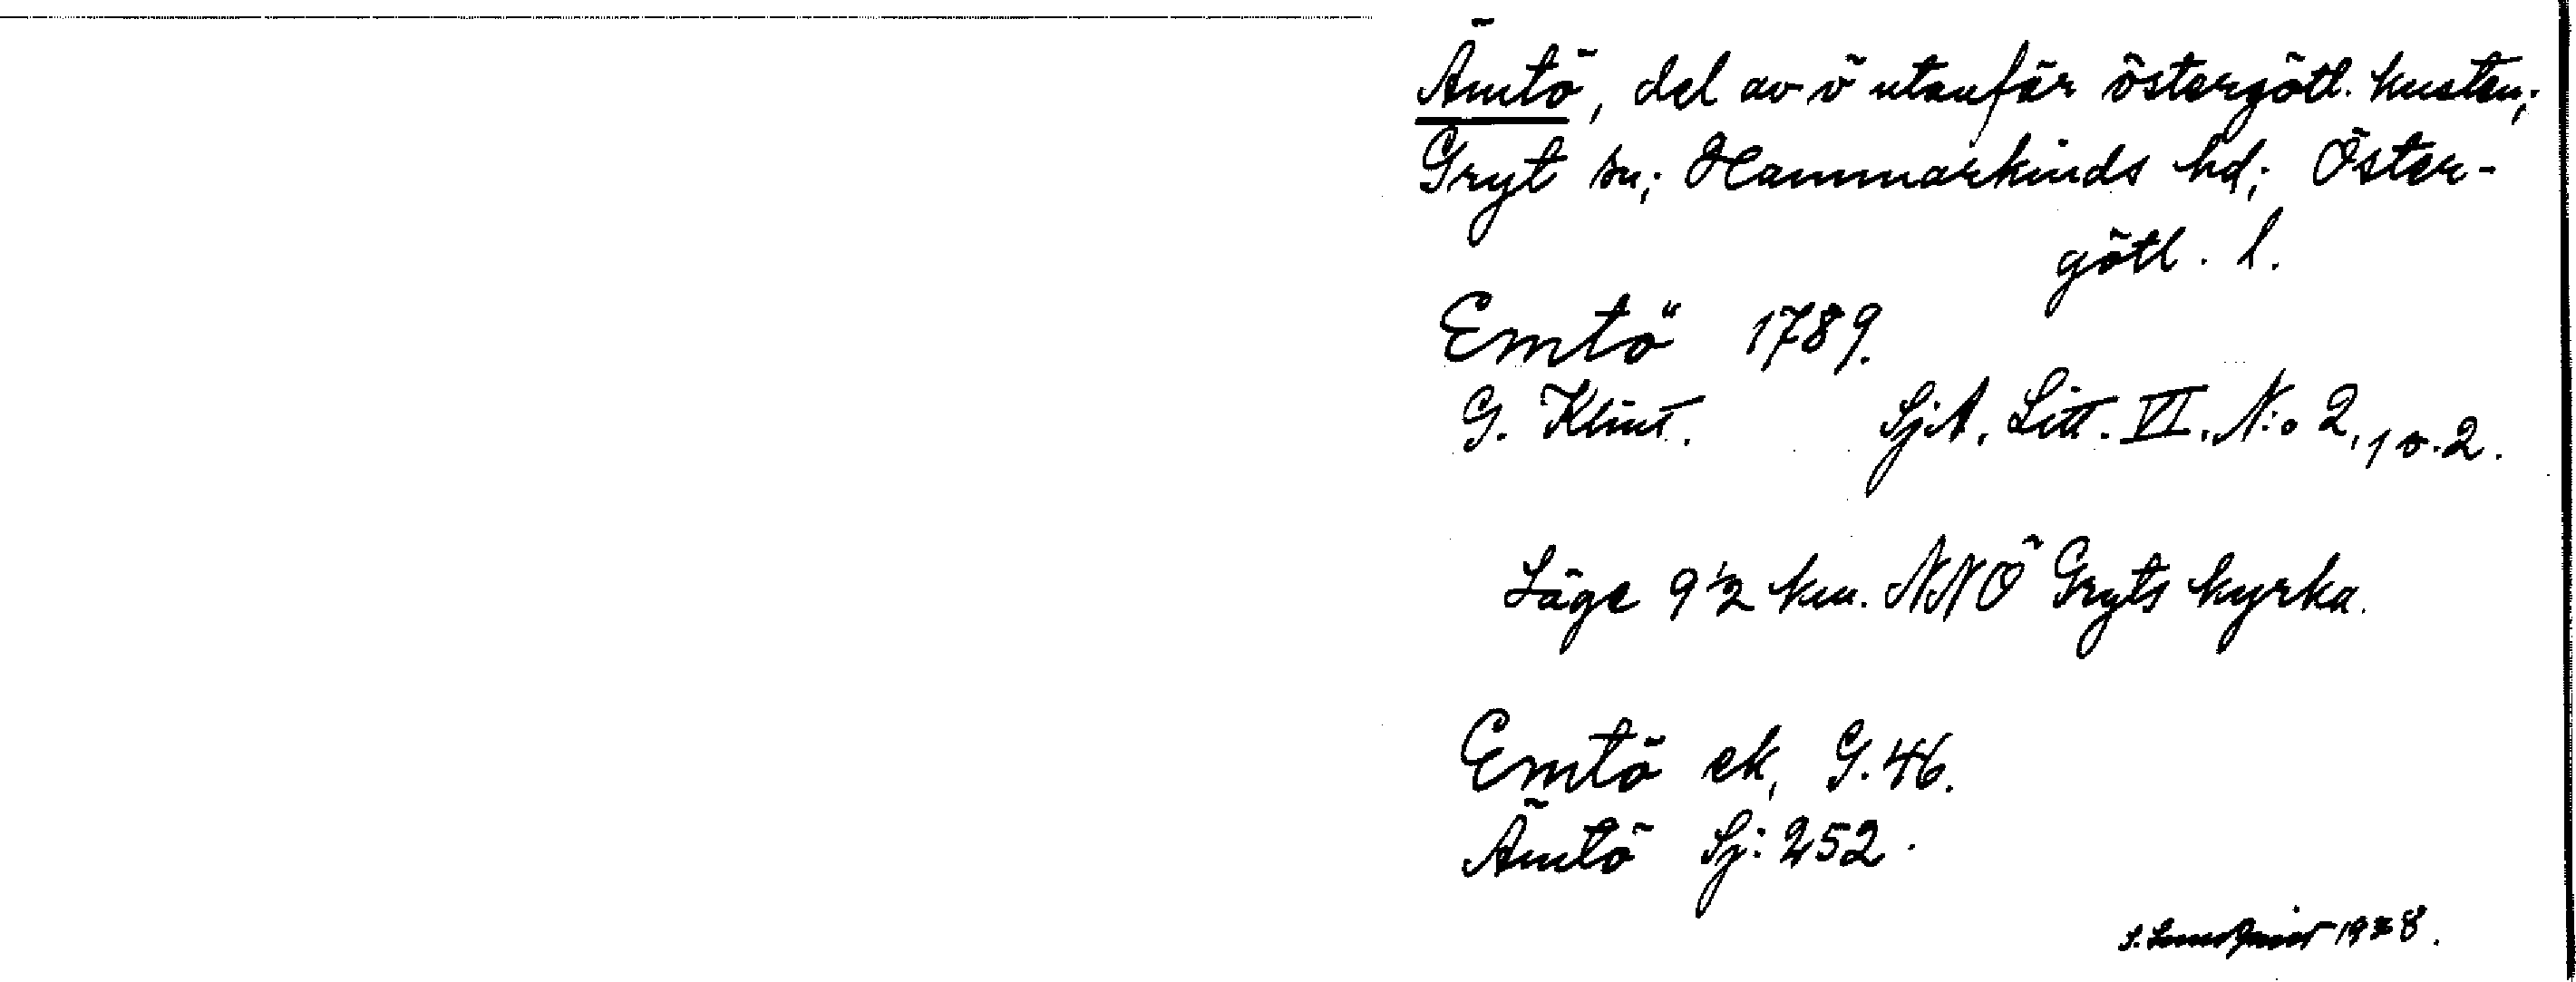 Ämtö, del av ö utanför östergötl. kusten;
Gryt sn; Hammarkinds hd; Öster-
götl. l.
Emtö 1789.
G. Klint. SjA. Litt. VI. N:o 2, 1 o. 2.
Läge 9 1/2 km. NNÖ Gryts kyrka.
Emtö ek, G. 46.
Ämtö Sj: 252.
S. Lundqvist 1928.